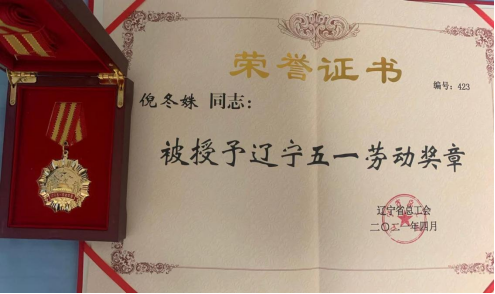 荣誉证书
编号：423
倪冬姝 同志：
被授予辽宁五一劳动奖章
辽宁省总工会
二〇二一年四月